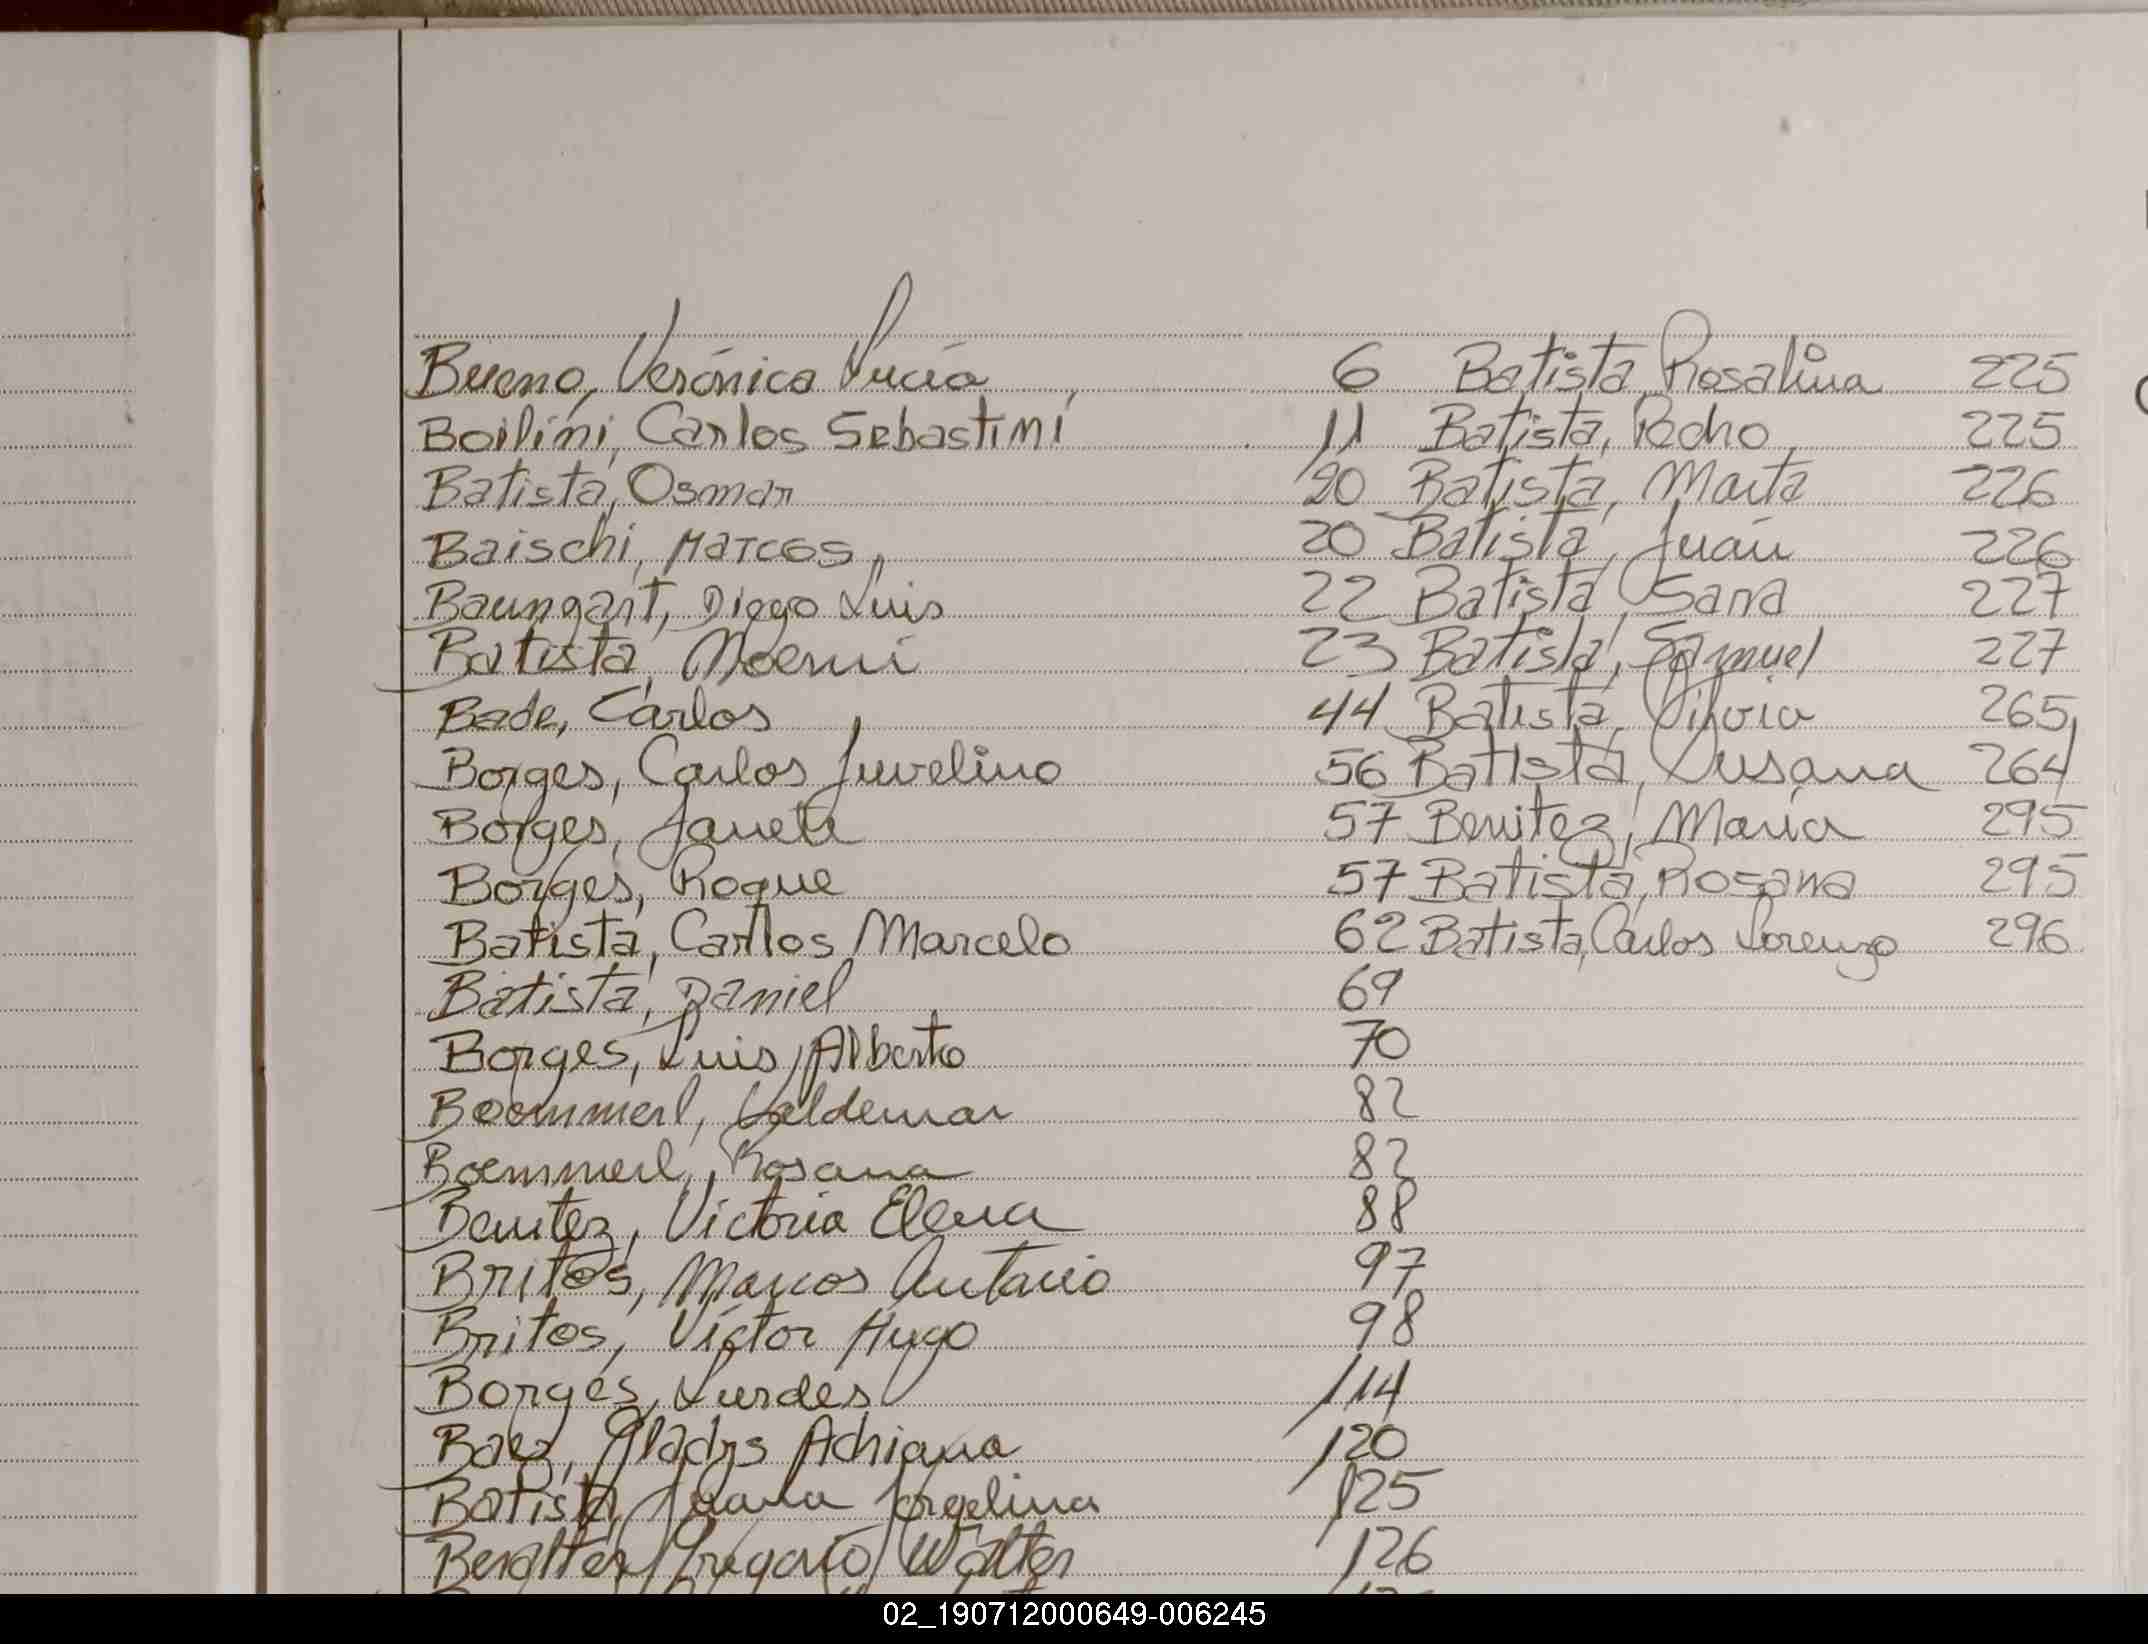 Bueno, Verónica Lucía 6 Batista Rosalina 225
Boilini, Carlos Sebastini 11 Batista, Pedro 225
Batista, Osmar 20 Batista, Marta 226
Baischi, Marcos, 20 Batista, Juan 226
Baungart, Diego Luis 22 Batista, Sara 227
Batista, Noemi 23 Batista, Samuel 227
Bade, Carlos 44 Batista, Silvia 265
Borges, Carlos Juvelino 56 Batista, Susana 264
Borges, Janeta 57 Benitez, María 295
Borges, Roque 57 Batista, Rosana 295
Batista, Carlos Marcelo 62 Batista, Carlos Lorenzo 296
Batista, Daniel 69
Borges, Luis Alberto 70
Boemmerl, Valdemar 82
Boemmerl, Rosana 82
Benitez, Victoria Elena 88
Britos, Marcos Antonio 97
Britos, Víctor Hugo 98
Borges, Lurdes 114
Baez, Gladys Adriana 120
Batista, Juana Jorgelina 125
Gregorio Walter 126
02_190712000649-006245